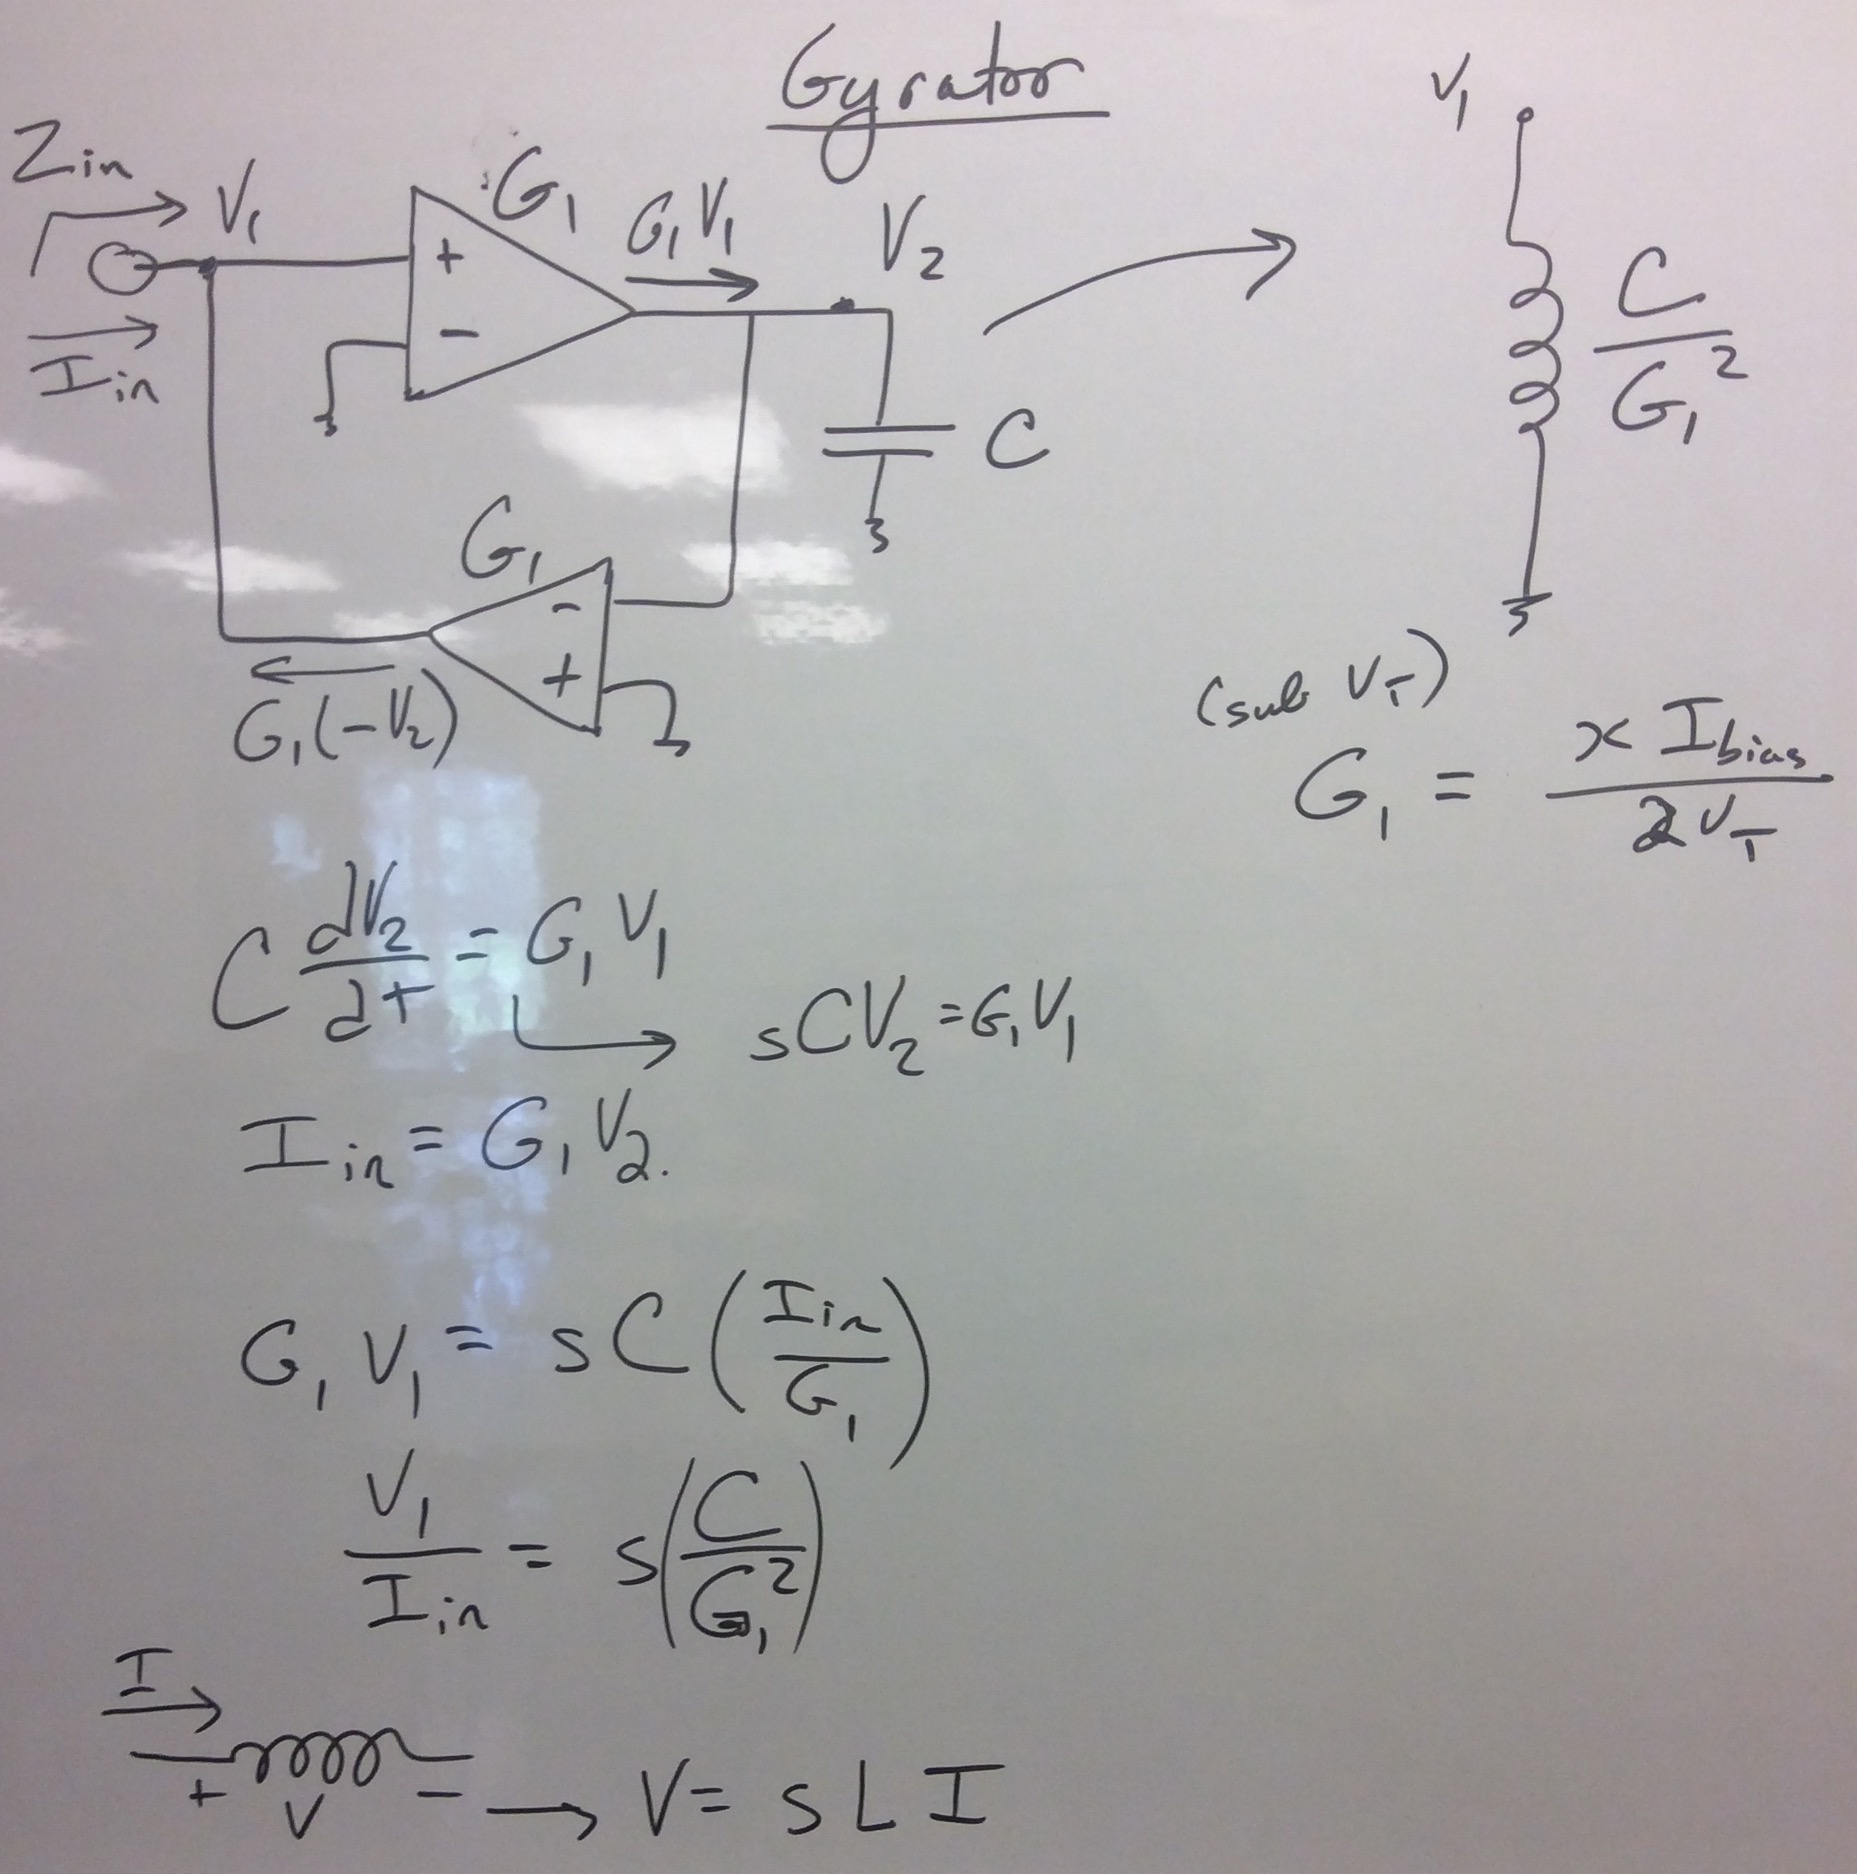 Gyrator
Zin
V1
G1
G1V1
V2
V1
+
−
Iin
C
C/G1²
G1
−
+
G1(−V2)
(sub VT)
G1 = x Ibias / 2VT
C dV2/dt = G1 V1
sCV2 = G1V1
Iin = G1 V2.
G1 V1 = sC(Iin/G1)
V1/Iin = s(C/G1²)
I
+ V − → V = s L I